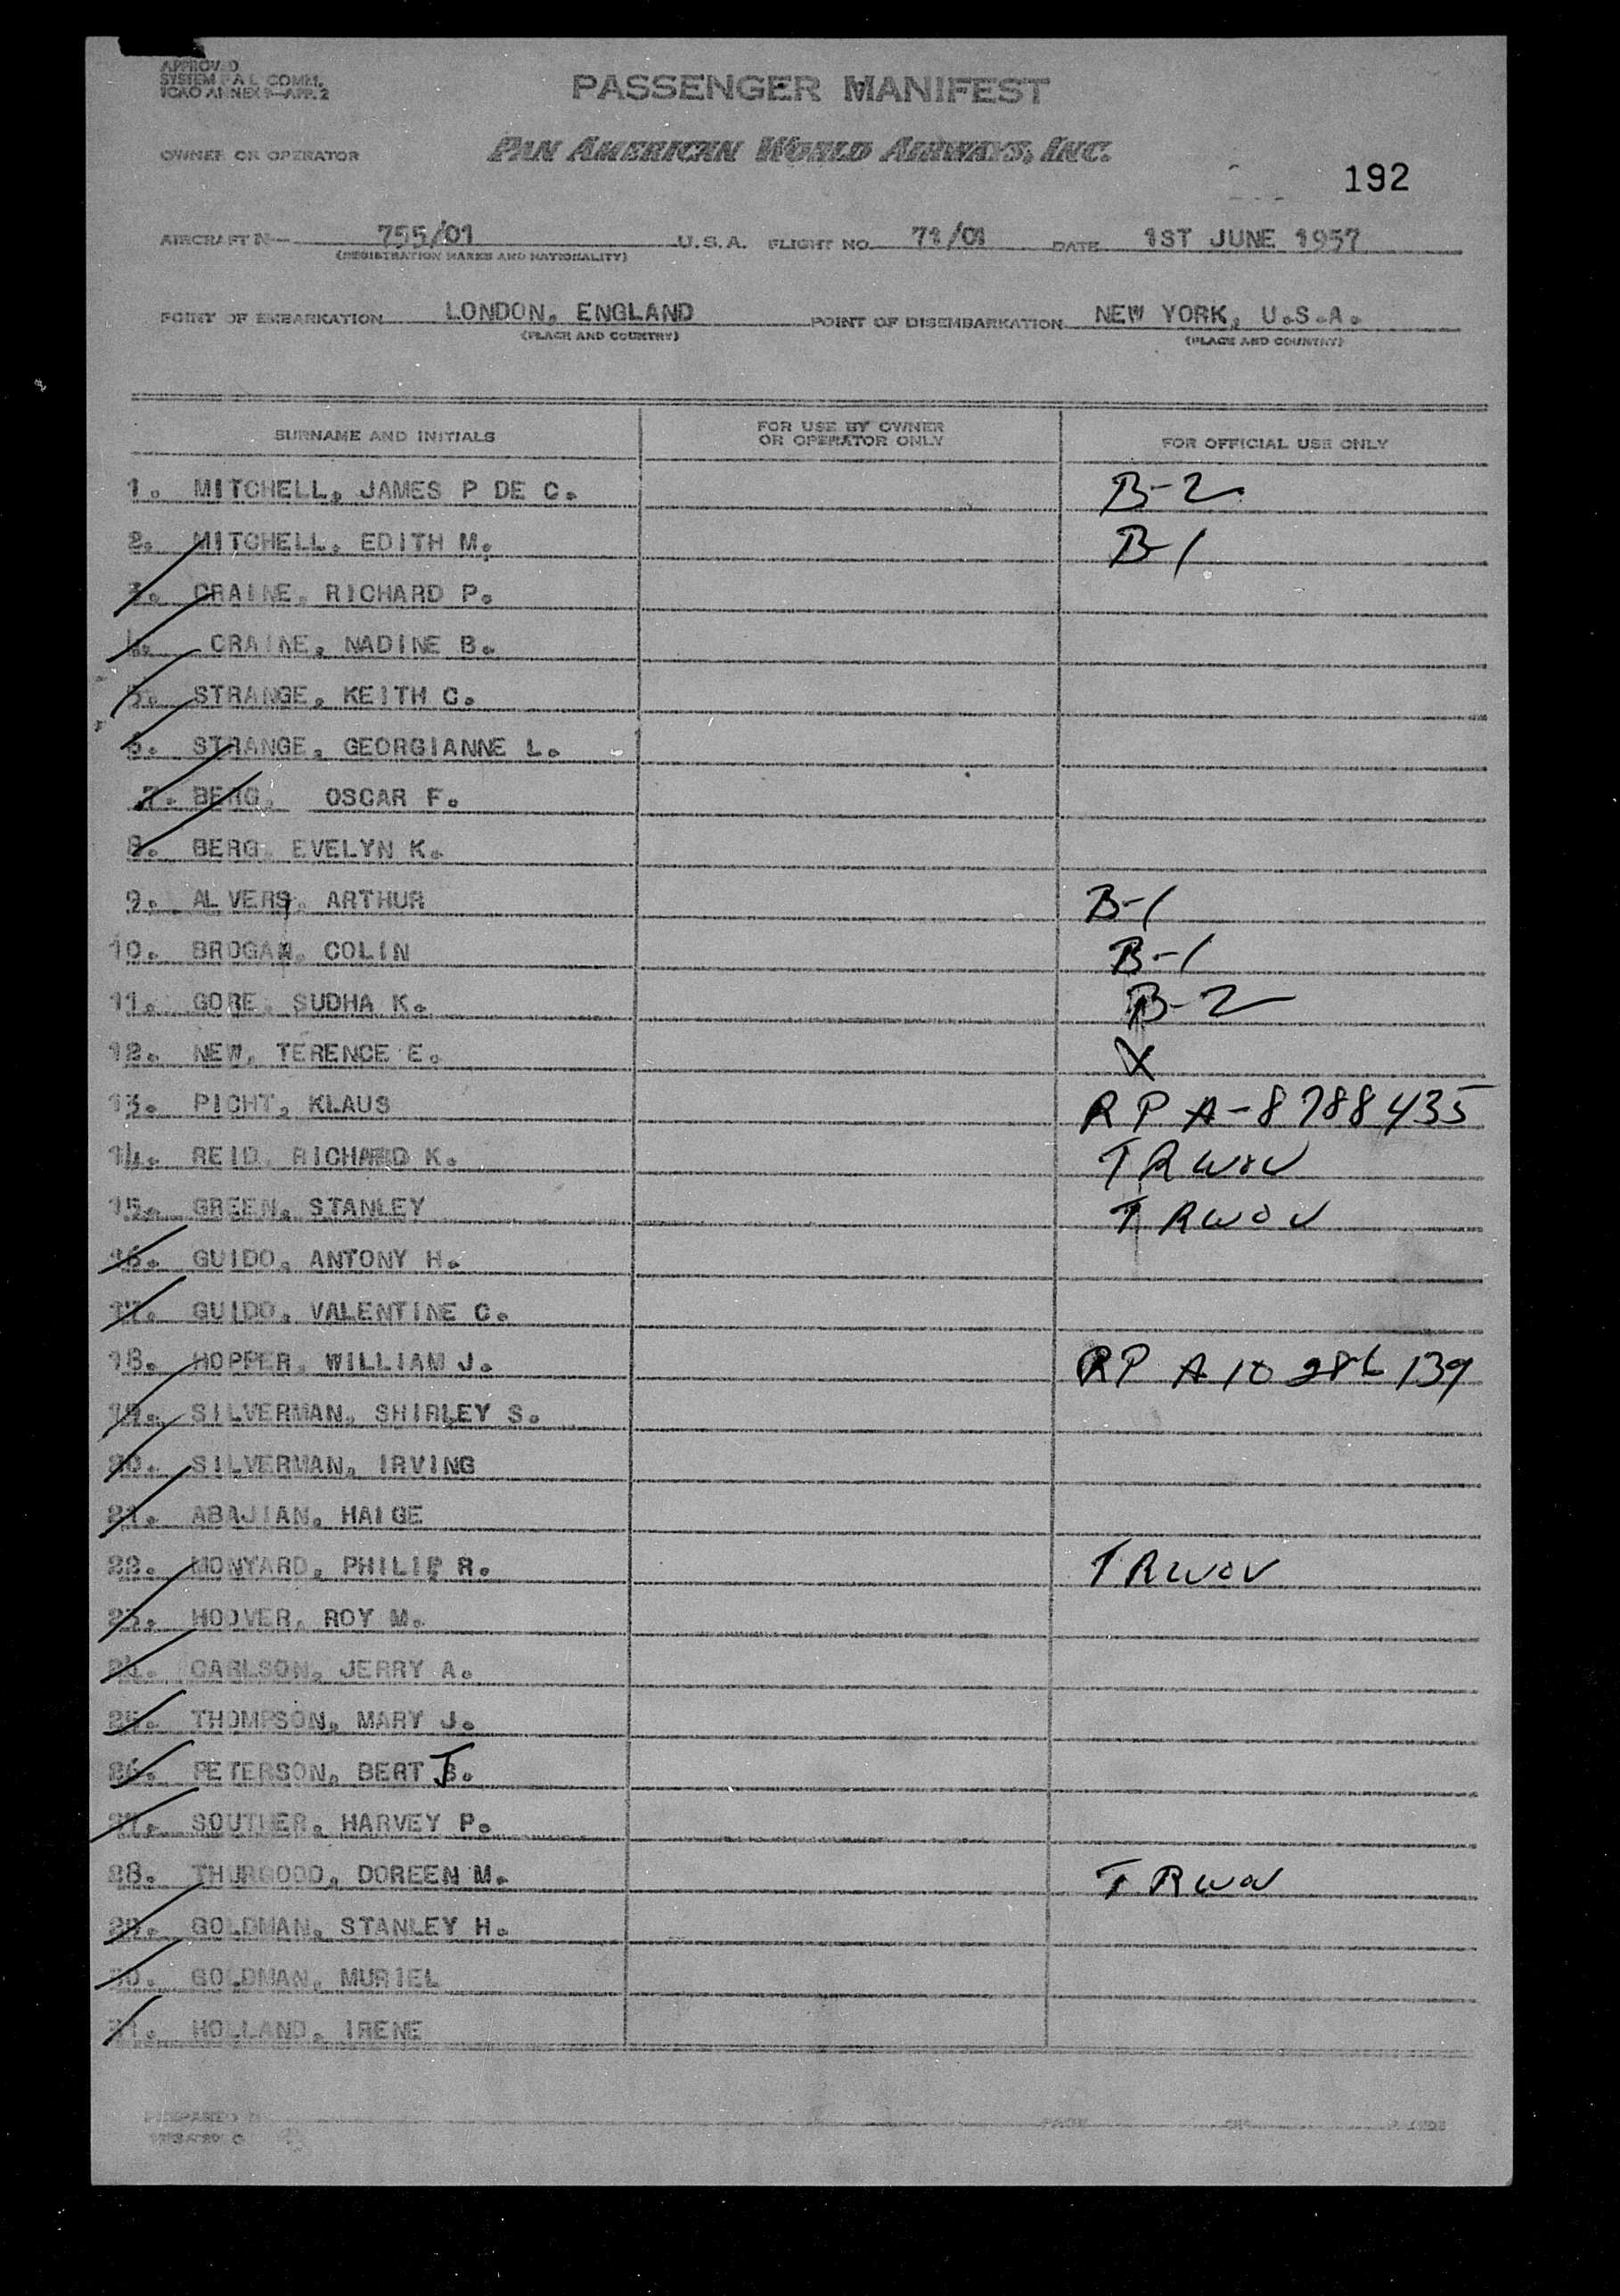 APPROVED
SYSTEM P A L COMM.
ICAO ANNEX 9—APP. 2
PASSENGER MANIFEST
OWNER OR OPERATOR PAN AMERICAN WORLD AIRWAYS, INC.
192
AIRCRAFT N— 755/01 U.S.A. FLIGHT NO. 71/01 DATE 1ST JUNE 1957
(REGISTRATION MARKS AND NATIONALITY)
POINT OF EMBARKATION LONDON, ENGLAND POINT OF DISEMBARKATION NEW YORK, U.S.A.
(PLACE AND COUNTRY) (PLACE AND COUNTRY)
SURNAME AND INITIALS FOR USE BY OWNER OR OPERATOR ONLY FOR OFFICIAL USE ONLY
1. MITCHELL, JAMES P DE C. B-2
2. MITCHELL, EDITH M. B-1
3. CRAINE, RICHARD P.
4. CRAINE, NADINE B.
5. STRANGE, KEITH C.
6. STRANGE, GEORGIANNE L.
7. BERG, OSCAR F.
8. BERG, EVELYN K.
9. ALVERS, ARTHUR B-1
10. BROGAN, COLIN B-1
11. GORE, SUDHA K. B-2
12. NEW, TERENCE E. X
13. PICHT, KLAUS RP A-8788435
14. REID, RICHARD K. TRWOV
15. GREEN, STANLEY TRWOV
16. GUIDO, ANTONY H.
17. GUIDO, VALENTINE C.
18. HOPPER, WILLIAM J. RP A10 286 139
19. SILVERMAN, SHIRLEY S.
20. SILVERMAN, IRVING
21. ABAJIAN, HAIGE
22. MONYARD, PHILIP R. TRWOV
23. HOOVER, ROY M.
24. CARLSON, JERRY A.
25. THOMPSON, MARY J.
26. PETERSON, BERT J.
27. SOUTHER, HARVEY P.
28. THURGOOD, DOREEN M. TRWOV
29. GOLDMAN, STANLEY H.
30. GOLDMAN, MURIEL
31. HOLLAND, IRENE
PREPARED BY PAGE OF PAGES